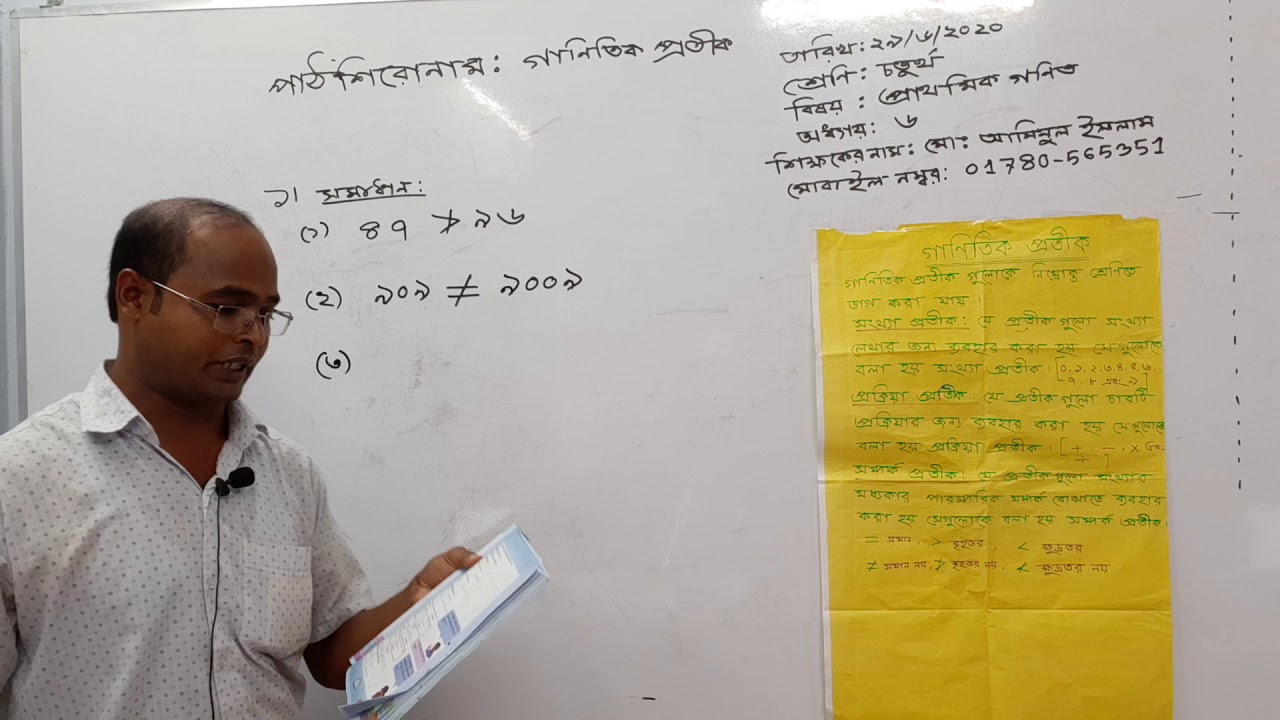 পাঠ শিরোনাম: গাণিতিক প্রতীক
তারিখ: ২৯/৬/২০২০
শ্রেণি: চতুর্থ
বিষয়: প্রাথমিক গণিত
অধ্যায়: ৬
শিক্ষকের নাম: মো: আমিনুল ইসলাম
মোবাইল নম্বর: 01780-565351
১। সমাধান:
(১) ৪৭ ≯ ৯৬
(২) ৯০৯ ≠ ৯০০৯
(৩)
গাণিতিক প্রতীক
গাণিতিক প্রতীক গুলোকে নিম্নোক্ত শ্রেনিতে
ভাগ করা যায়।
সংখ্যা প্রতীক: যে প্রতীক গুলো সংখ্যা
লেখার জন্য ব্যবহার করা হয় সেগুলোকে
বলা হয় সংখ্যা প্রতীক। [০,১,২,৩,৪,৫,৬,
৭,৮ এবং ৯]
প্রক্রিয়া প্রতীক: যে প্রতীক গুলো চারটি
প্রক্রিয়ার জন্য ব্যবহার করা হয় সেগুলোকে
বলা হয় প্রক্রিয়া প্রতীক। [+, −, ×
÷]
সম্পর্ক প্রতীক: যে প্রতীক গুলো সংখ্যার
মধ্যকার পারস্পারিক সম্পর্ক বোঝাতে ব্যবহার
করা হয় সেগুলোকে বলা হয় সম্পর্ক প্রতীক।
= সমান, > বৃহত্তর, < ক্ষুদ্রতর
≠ সমান নয়, ≯ বৃহত্তর নয়, ≮ ক্ষুদ্রতর নয়